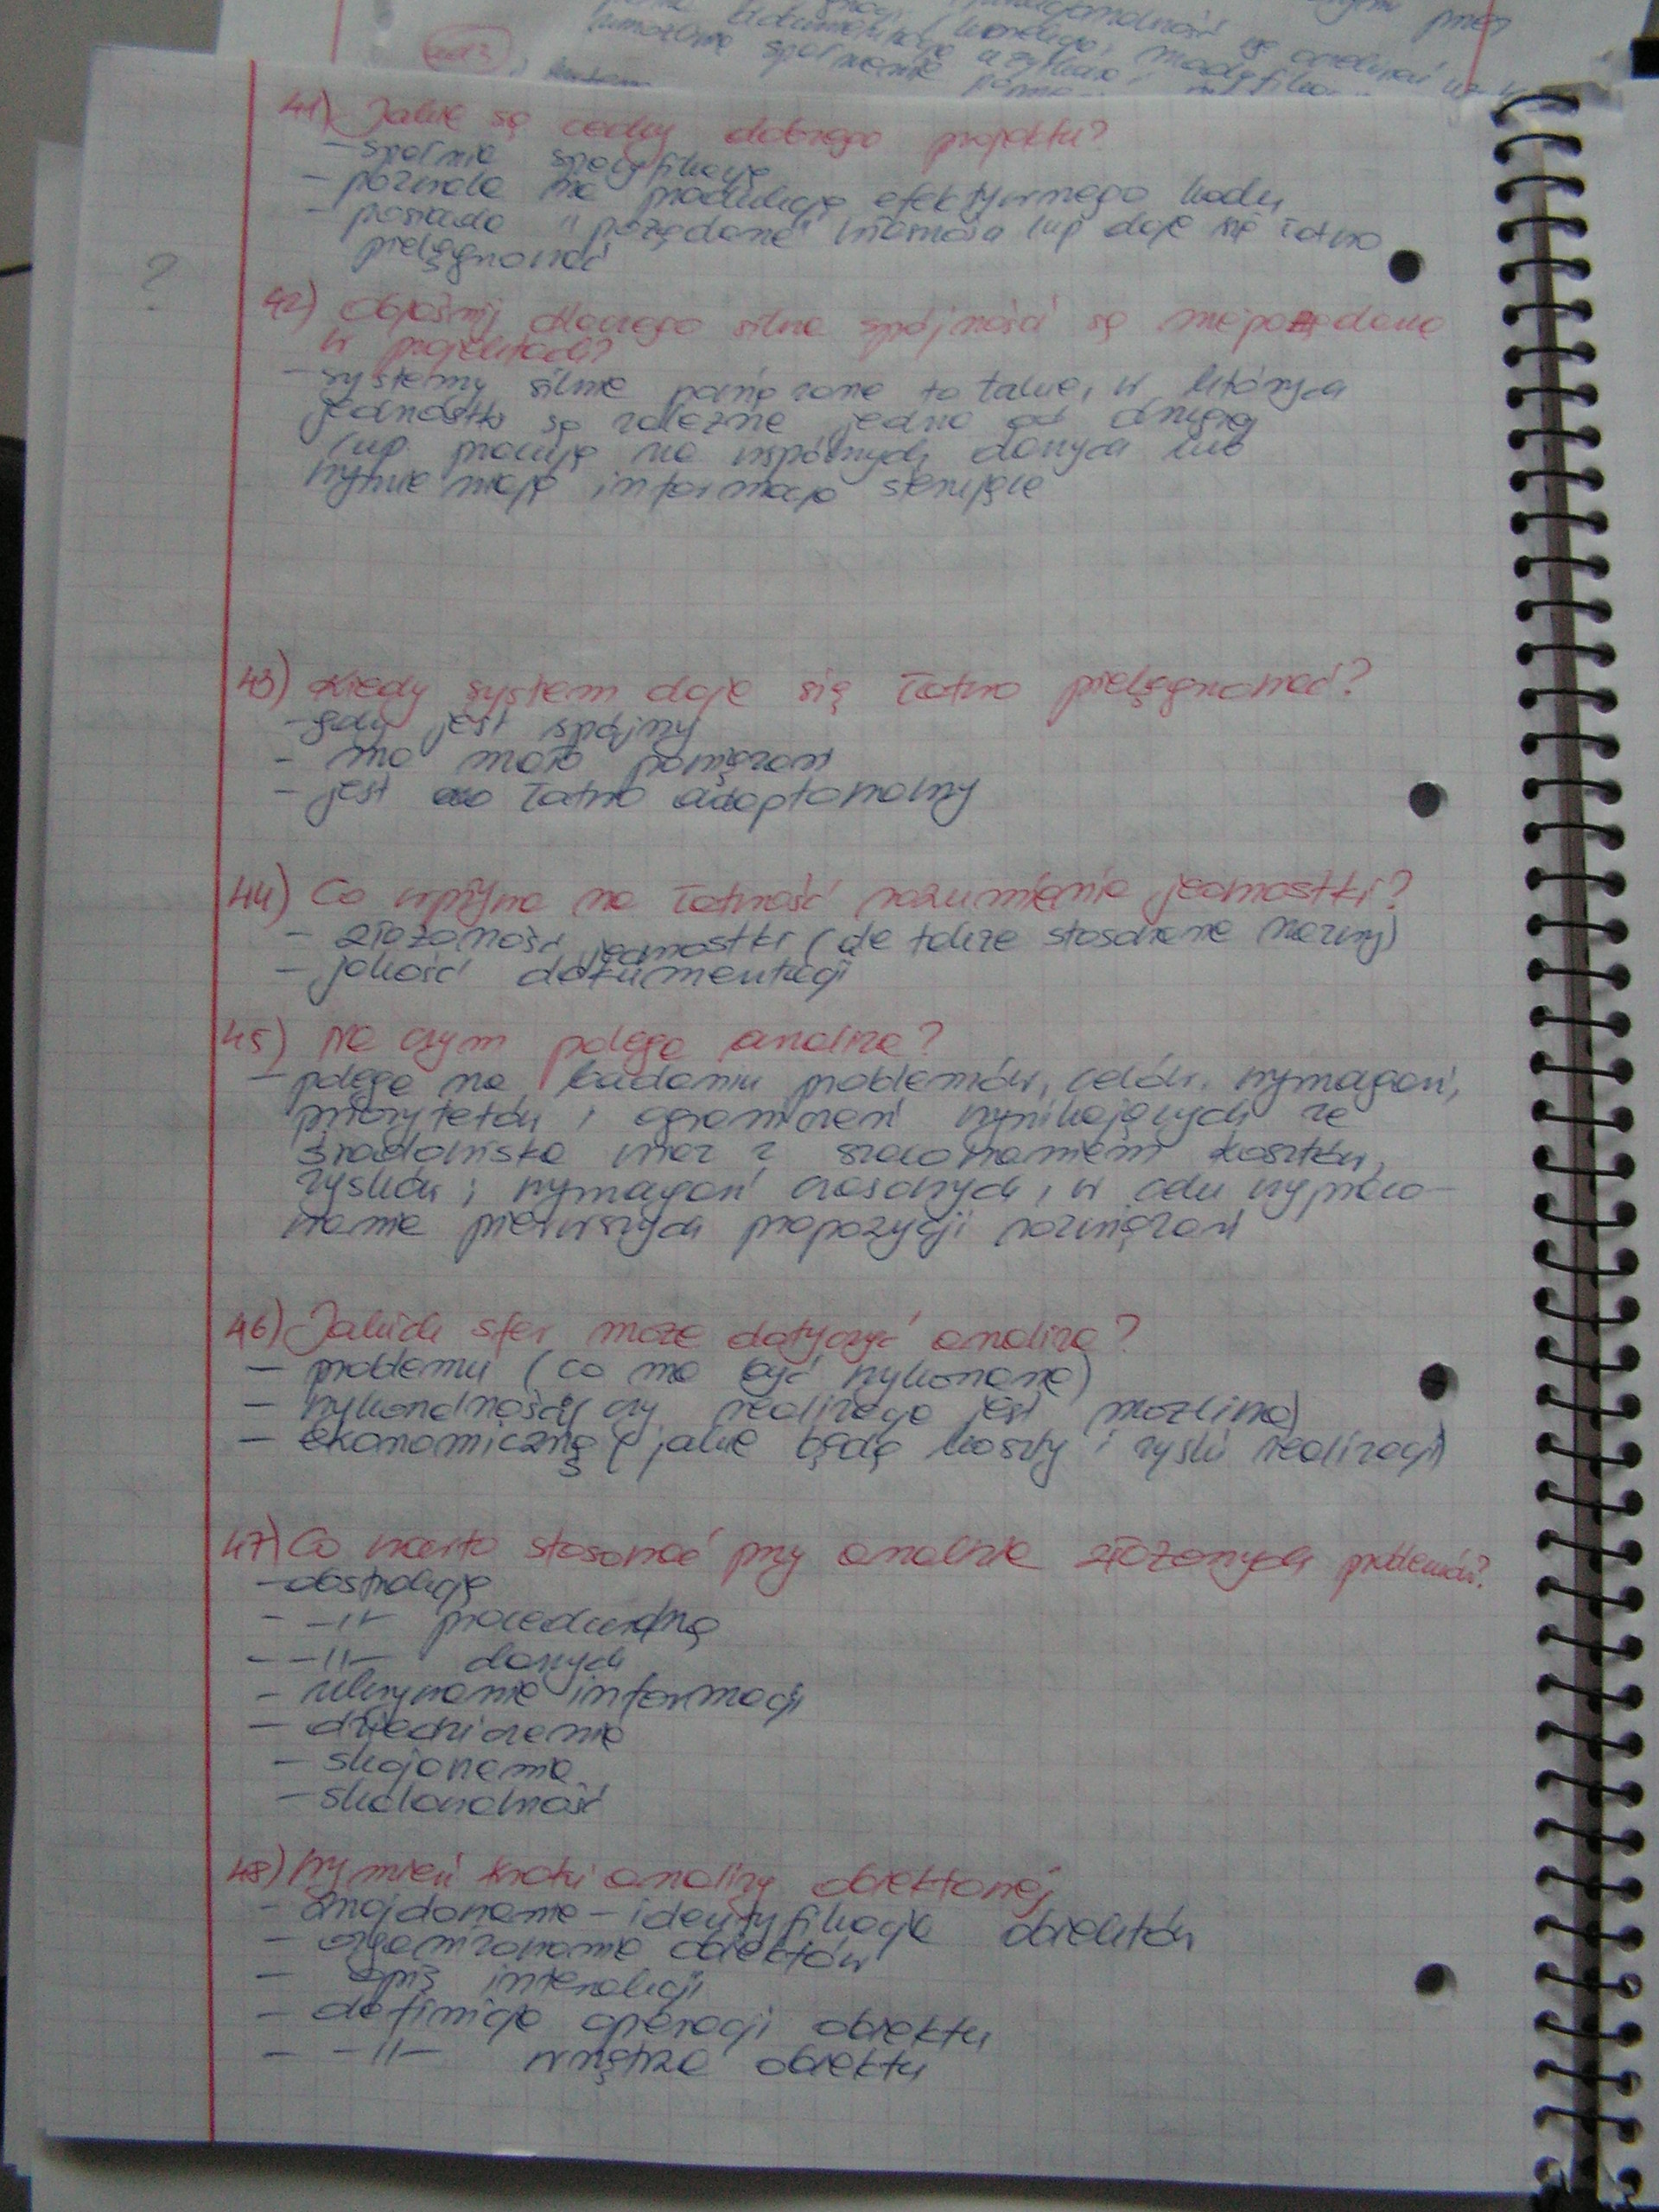 41) Jakie są cechy dobrego projektu?
- spełnia specyfikację
- pozwala na produkcję efektywnego kodu
- posiada "pożądane" własności np daje się łatwo
pielęgnować
?
42) Objaśnij dlaczego silne spójności są niepożądane
w projektach?
- systemy silnie powiązane to takie, w których
jednostki są zależne jedna od drugiej
(np. pracują na wspólnych danych lub
wymieniają informacje sterujące
43) Kiedy system daje się łatwo pielęgnować?
- gdy jest spójny
- ma mało powiązań
- jest łatwo adaptowalny
44) Co wpływa na łatwość rozumienia jednostki?
- złożoność jednostki (ale także stosowane nazwy)
- jakość dokumentacji
45) Na czym polega analiza?
- polega na badaniu problemów, celów, wymagań,
priorytetów i ograniczeń wynikających ze
środowiska wraz z szacowaniem kosztów,
zysków i wymagań czasowych, w celu wypraco-
wania pierwszych propozycji rozwiązań
46) Jakich sfer może dotyczyć analiza?
- problemu (co ma być wykonane)
- wykonalności czy realizacja jest możliwa)
- ekonomiczną (jakie będą koszty i zyski realizacji)
47) Co warto stosować przy analizie złożonych problemów?
- abstrakcję
- -||- proceduralną
- -||- danych
- ukrywanie informacji
- dziedziczenie
- skojarzenia
- skalowalność
48) Wymień kroki analizy obiektowej
- Znajdowanie - identyfikacja obiektów
- organizowanie obiektów
- opis interakcji
- definicja operacji obiektu
- -||- wnętrza obiektu